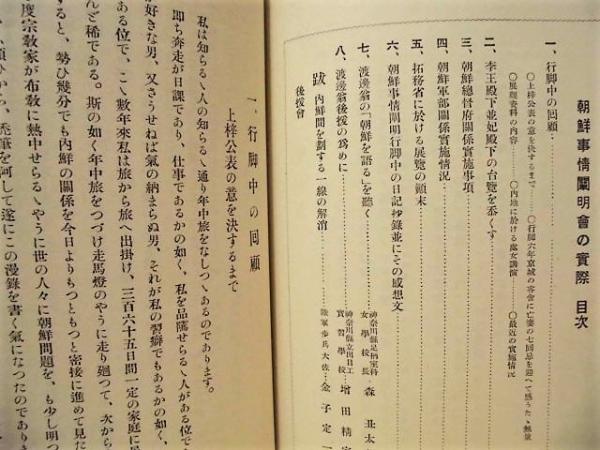 朝鮮事情闡明會の實際 目次
一、行脚中の回顧
○上梓公表の意を決するまで……○行脚六年京城の客舍に亡妻の七回忌を迎へて感うた、無量
○展覽資料の內容……○內地に於ける處女講演……○最近の實施情況
二、李王殿下並妃殿下の台覽を忝くす
三、朝鮮總督府關係實施事項
四、朝鮮軍部關係實施情況
五、拓務省に於ける展覽の顚末
六、朝鮮事情闡明行脚中の日記抄錄並にその感想文
七、渡邊翁の「朝鮮を語る」を聽く 神奈川縣足柄室待女學校長 森 丑太
八、渡邊翁後援の爲めに 神奈川縣立出日工實習學校 增田精
跋 內鮮間を劃する一線の解消 陸軍步兵大佐 金子定一
後援會
一、行脚中の回顧
上梓公表の意を決するまで
私は知らるゝ人の知らるゝ通り年中旅をなしつゝあるのであります。
即ち奔走が日課であり、仕事であるかの如く、私を品隲せらるゝ人がある位で
が好きな男、又さうせねば氣の納まらぬ男、それが私の習癖でもあるかの如く、
ある位で、こゝ數年來私は旅から旅へ出掛け、三百六十五日間一定の家庭に
んど稀である。斯の如く年中旅をつづけ走馬燈のやうに走り廻つて、次から
すると、勢ひ幾分でも內鮮の關係を今日よりもつともつと密接に進めて見た
度宗敎家が布敎に熱中せらるゝやうに世の人々に朝鮮問題を、も少し明つ
禿筆を呵して遂にこの漫錄を書く氣になつたのであり